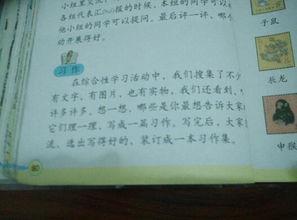 小组里交流
各组代表汇报的时候，本组的同学可以
他小组的同学可以提问。最后评一评，哪
动开展得好。
习作
在综合性学习活动中，我们搜集了不少
有文字、有图片，也有实物，我们还看到、
许多许多。想一想，哪些是你最想告诉大家
它们理一理，写成一篇习作。写完后，大家
流，选出写得好的，装订成一本习作集。
80
子鼠
辰龙
申猴